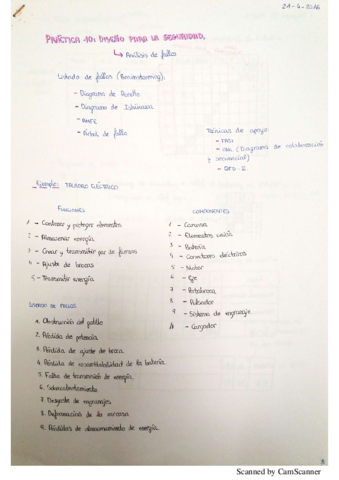 21-4-2016
PRÁCTICA 10: DISEÑO PARA LA SEGURIDAD.
↳ Análisis de fallos
Listado de fallos (Brainstorming).
- Diagrama de Pareto
- Diagrama de Ishikawa
- AMFE
- Árbol de fallo
Técnicas de apoyo
- FAST
(Diagrama de colaboración
y secuencial)
Ejemplo: TALADRO ELÉCTRICO
FUNCIONES
1 - Contener y proteger elementos
2 - Almacenar energía
3 - Crear y transmitir par de fuerzas
4 - Ajuste de brocas
5 - Transmitir energía
COMPONENTES
1 - Carcasa
2 - Elementos unión
3 - Batería
4 - Conectores eléctricos
5 - Motor
6 - Eje
7 - Portabrocas
8 - Pulsador
9 - Sistema de engranaje
10 - Cargador
LISTADO DE FALLOS
1. Obstrucción del gatillo
2. Pérdida de potencia
3. Pérdida de ajuste de broca
4. Pérdida de de la batería
5. Fallos de transmisión de energía
6. Sobrecalentamiento
7. Desgaste de engranajes
8. Deformación de la carcasa
9. Pérdidas de almacenamiento de energía
Scanned by CamScanner